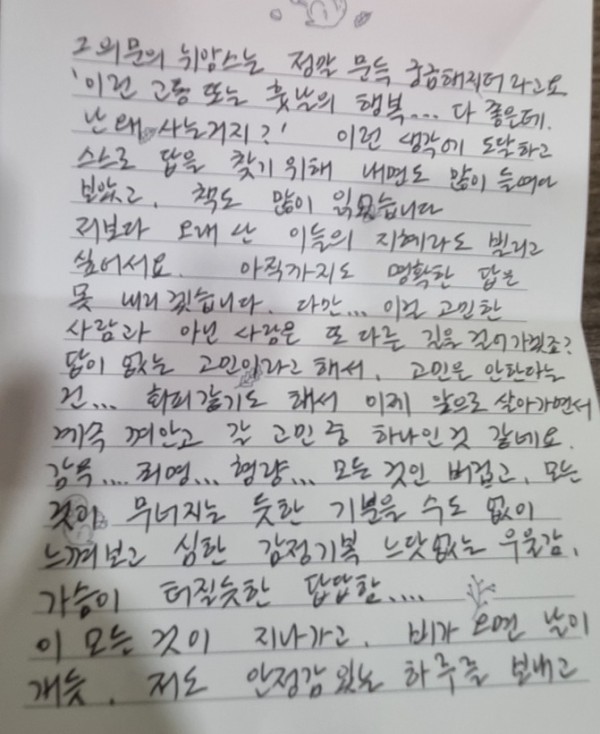 그 의문의 뉘앙스는 정말 문득 궁금해지더라고요
'이런 고통 또는 훗날의 행복... 다 좋은데.
난 왜 사는거지?' 이런 생각에 도달하고
스스로 답을 찾기 위해 내면도 많이 들여다
보았고, 책도 많이 읽었습니다
저보다 오래 산 이들의 지혜라도 빌리고
싶어서요. 아직까지도 명확한 답은
못 내리겠습니다. 다만... 이걸 고민한
사람과 아닌 사람은 또 다른 길을 걸어가겠죠?
답이 없는 고민이라고 해서, 고민은 안한다는
건... 회피같기도 해서 이제 앞으로 살아가면서
계속 껴안고 갈 고민 중 하나인것 같네요.
감옥.... 죄명... 형량... 모든 것인 버겁고, 모든
것이 무너지는 듯한 기분을 수도 없이
느껴보고 심한 감정기복 느닷없는 우울감,
가슴이 터질듯한 답답함....
이 모든 것이 지나가고, 비가 오면 날이
개듯, 저도 안정감있는 하루를 보내고